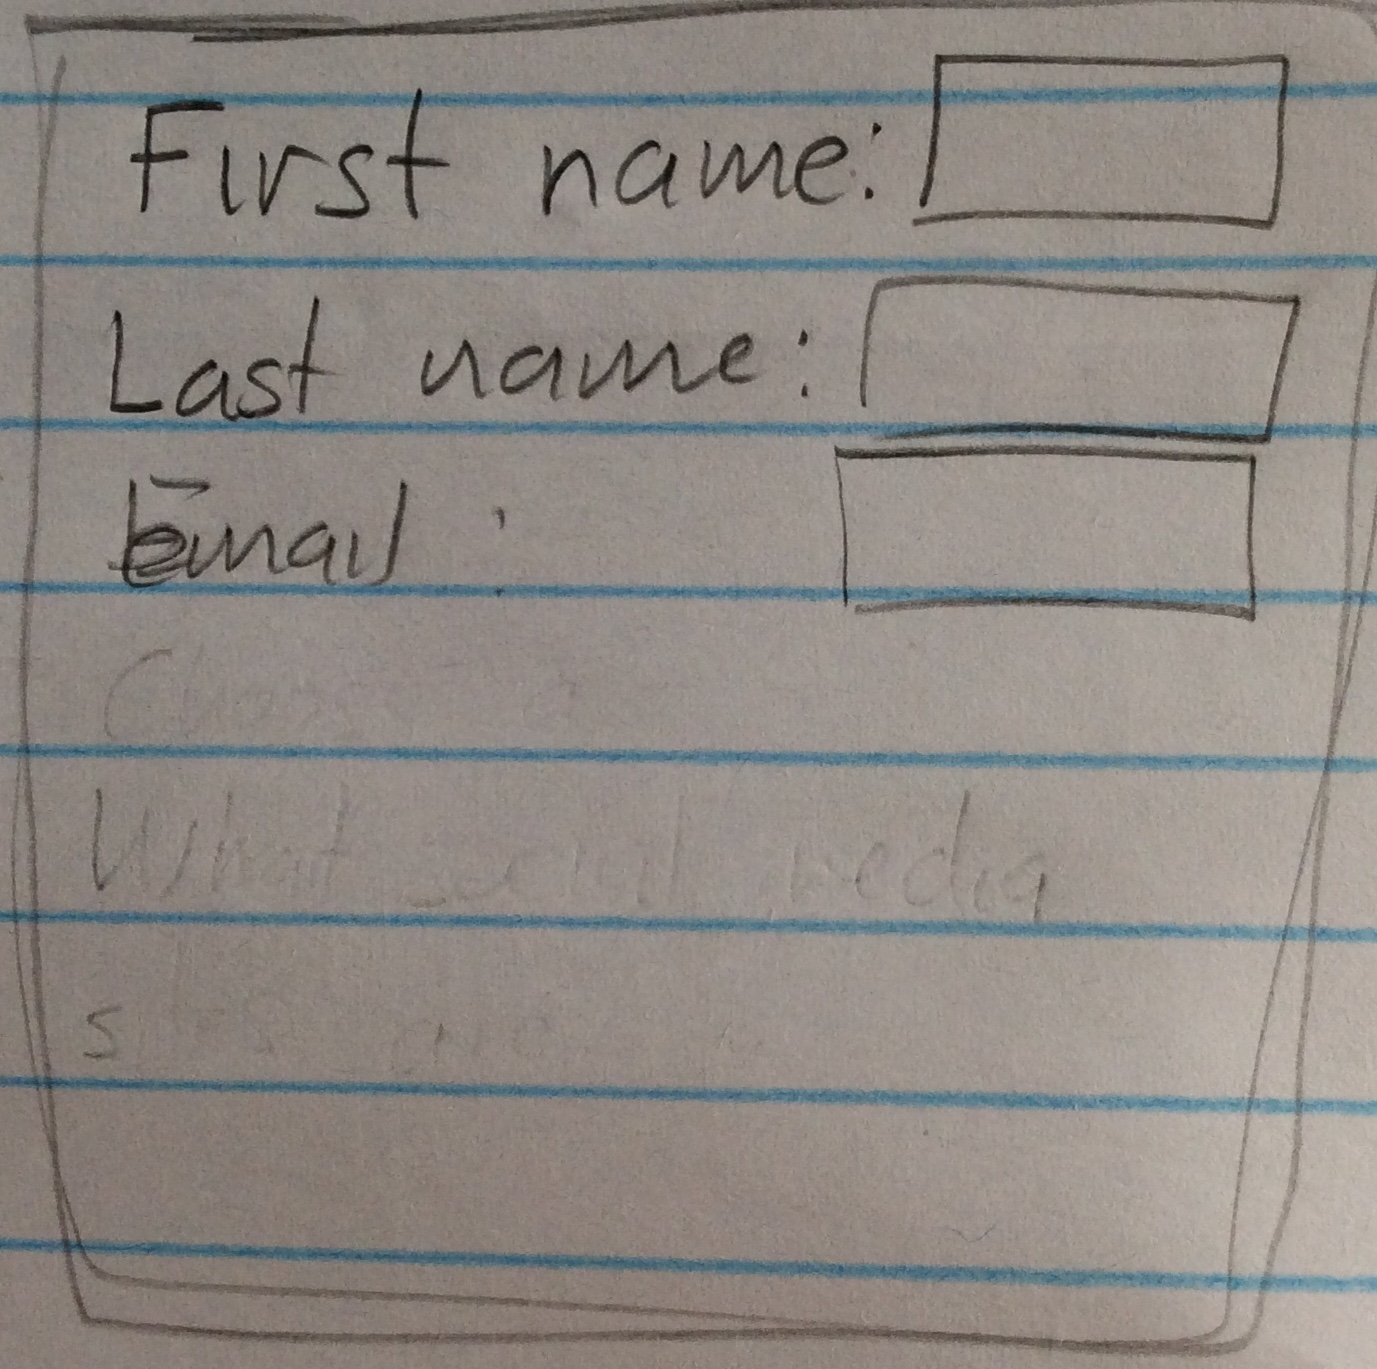 First name:
Last name:
Email :
What social media
s